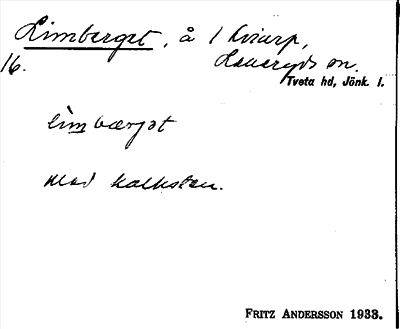 Limberget, å 1 Kviarp,
16. Lekeryds sn.
Tveta hd, Jönk. l.
limbærjət
Med kalksten.
FRITZ ANDERSSON 1933.